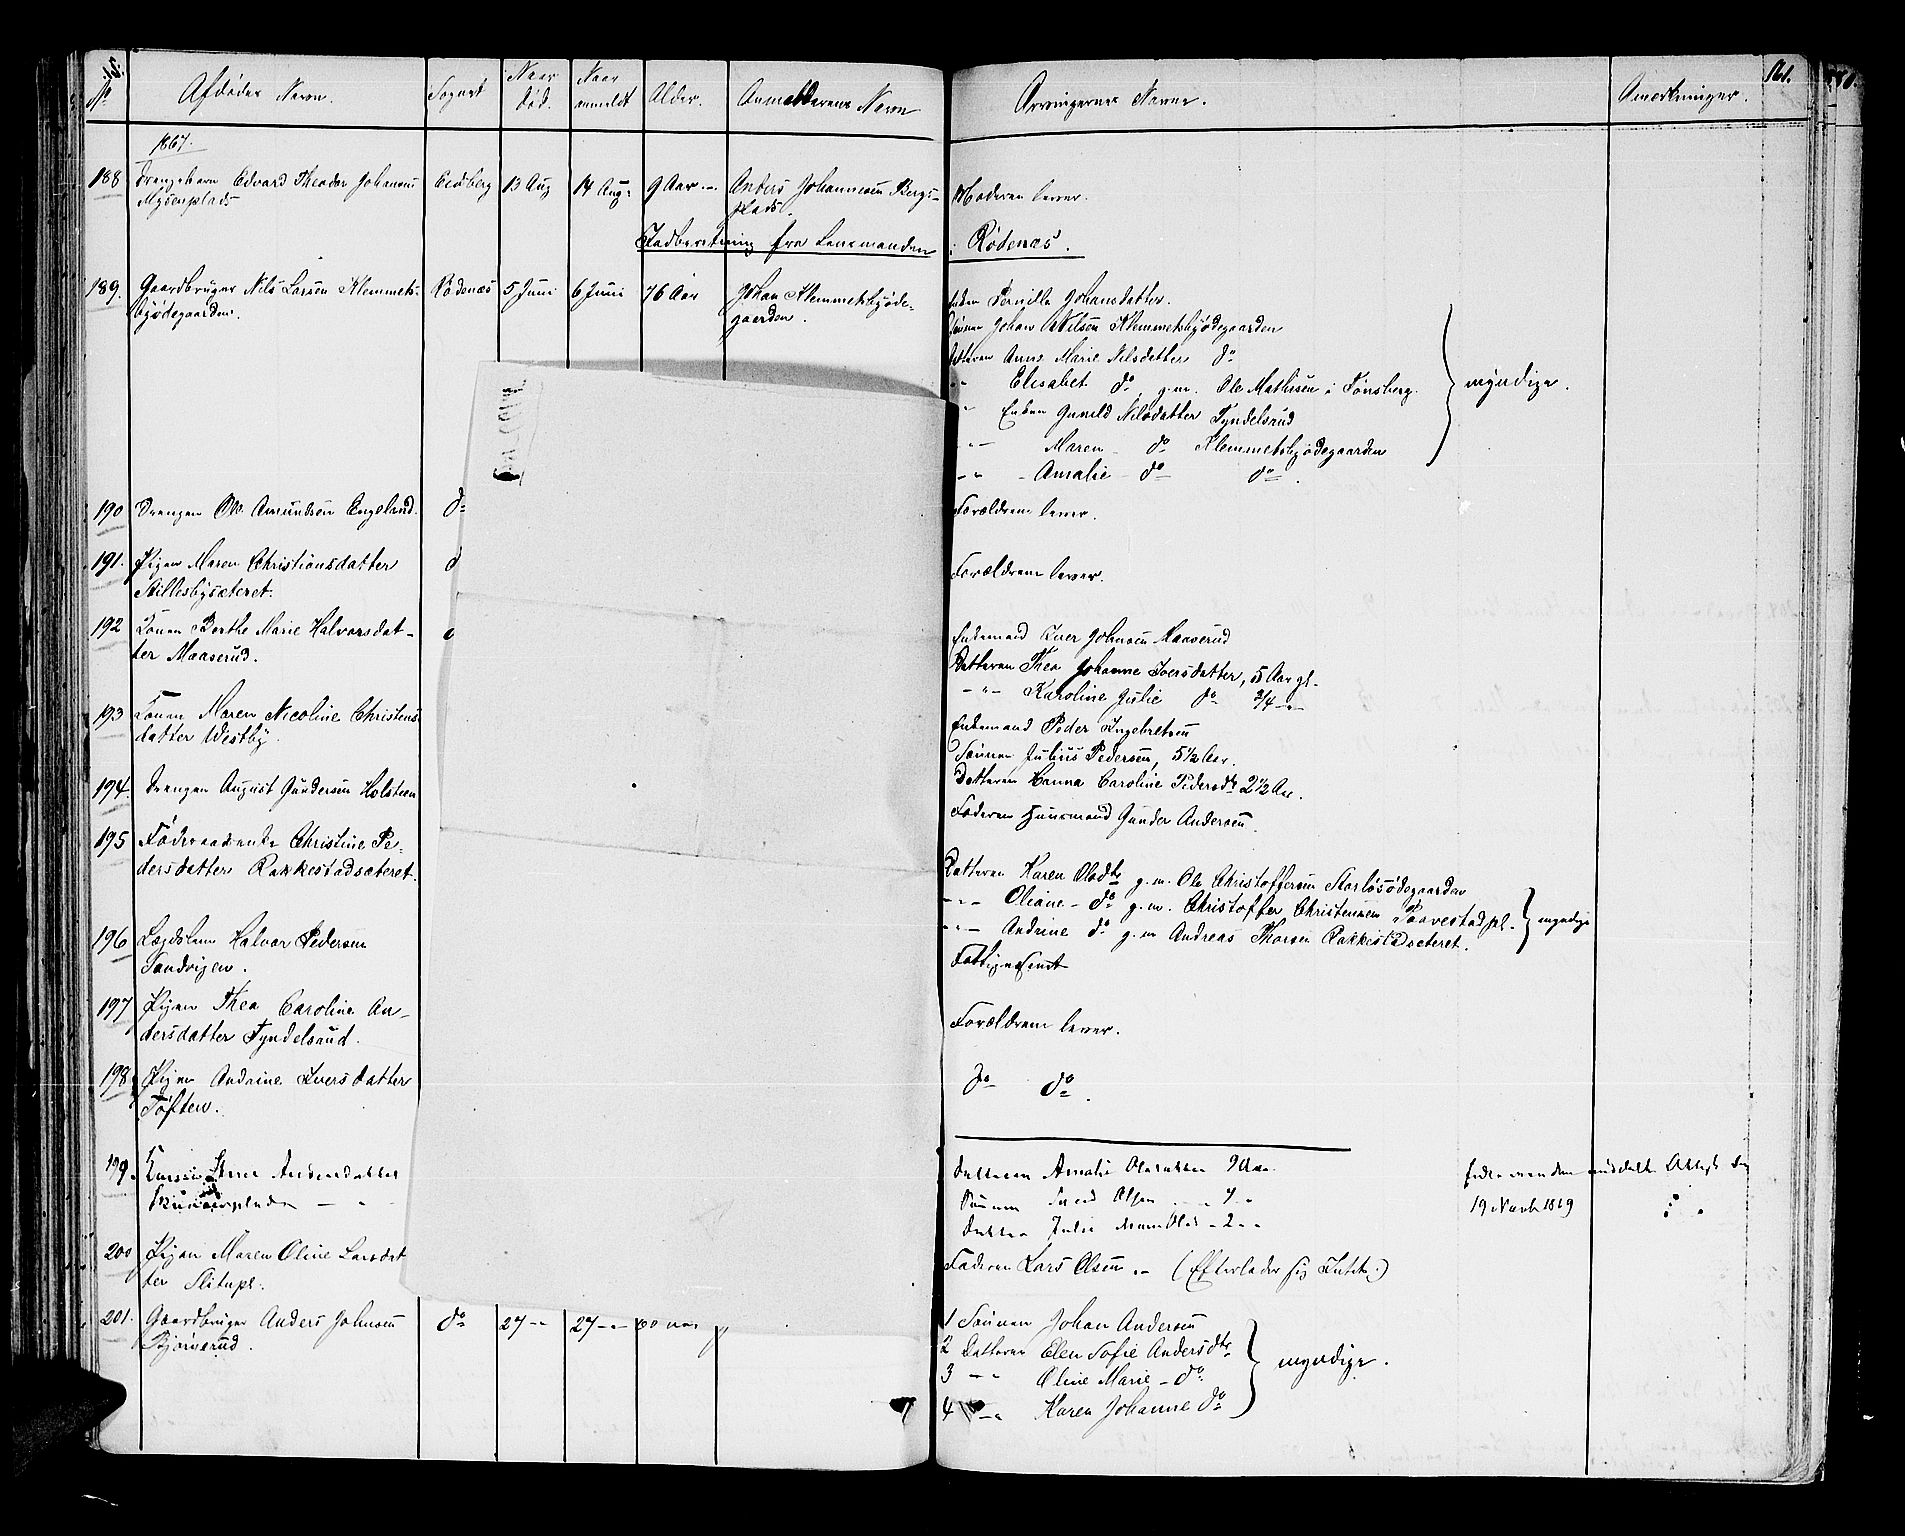 No
Afdødes Navn.
Sognet
Naar død.
Naar anmeldt
Alder.
Anmelderens Navn
Arvingernes Navne.
Anmerkninger.
161.
1867.
188 Drengebarn Edvard Theodor Johansen Eidsberg 13 Aug 14 Aug: 9 Aar Anders Johannesen Bergs- Moderen lever.
Mysenplads plads.
Dødberetning fra Lensmanden i Rødenæs.
189. Gaardbruger Nils Larsen Klemmets- Rødenæs 5 Juni 6 Juni 76 Aar Johan Klemmetsbyøde- Enken Pernille Johansdatter.
byødegaarden. gaarden. Sønnen Johan Nilsen Klemmetsbyødegaarden
Datteren Anne Marie Nilsdatter do
-"- Elisabet do g.m. Ole Mathisen i Tønsberg. myndige.
" Enken Gunild Nilsdatter Tyndelsrud
-"- Maren do Klemmetsbyødegaarden
-"- Amalie - do do.
190 Drengen Ole Amundsen Engelund. do Forældrene lever.
191. Pigen Maren Christiansdatter Forældrene lever.
Stillesbysæteret.
192 Konen Berthe Marie Halvorsdat- Enkemand Iver Johnsen Maaserud
ter Maaserud. Datteren Thea Johanne Iversdatter, 5 Aar gl.
-"- Karoline Julie do 3/4 -"-
193 Konen Maren Nicoline Christens Enkemand Peder Ingebretsen
datter Westby. Sønnen Julius Pedersen, 5 1/2 Aar.
Datteren Hanna Caroline Pedersdtr 2 1/2 Aar.
194. Drengen August Gundersen Holsteen Faderen Huusmand Gunder Andersen
195 Føderaadsenke Christine Pe- Datteren Karen Olsdtr g.m. Ole Christoffersen Starløsødegaarden
dersdatter Rakkestadsæteret. -"- Oliane - do g.m. Christoffer Christensen Paavestadpl. myndige
-"- Andrine do g.m Andreas Thorsen Rakkestadsæteret.
196 Lægdslem Halvor Pedersen Fattigvæsenet
Sandvigen.
197 Pigen Thea Caroline An- Forældrene lever.
dersdatter Tyndelsrud.
198 Pigen Andrine Iversdatter do do.
Toften.
199. Andersdatter Datteren Amalie Olsdatter 9 Aar.
Sønnen Olsen 4 "
Datteren Julie 2 "
19 Marts 1869
200 Pigen Maren Oline Larsdat Faderen Lars Olsen (Efterlader sig Intet.)
ter Slitupl.
201. Gaardbruger Anders Johnsen do 27 -"- 27 -"- 1 Sønnen Johan Andersen
Bjørnerud. 2 Datteren Elen Sofie Andersdtr
3 -"- Oline Marie - do myndige.
4 -"- Karen Johanne do